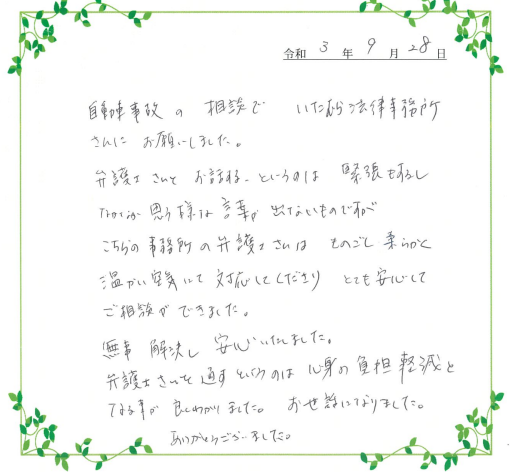 令和 3 年 9 月 28 日
自動車事故の 相談で いたむら法律事務所
さんに お願いしました。
弁護士さんと お話する、というのは 緊張もするし
なかなか思う様な言葉が 出ないものですが
こちらの事務所の弁護士さんは ものごし柔らかく
温かい空気にて 対応してくださり とても安心して
ご相談ができました。
無事 解決し 安心いたしました。
弁護士さんを通すというのは 心身の負担軽減と
なる事が 良くわかりました。 お世話になりました。
ありがとうございました。